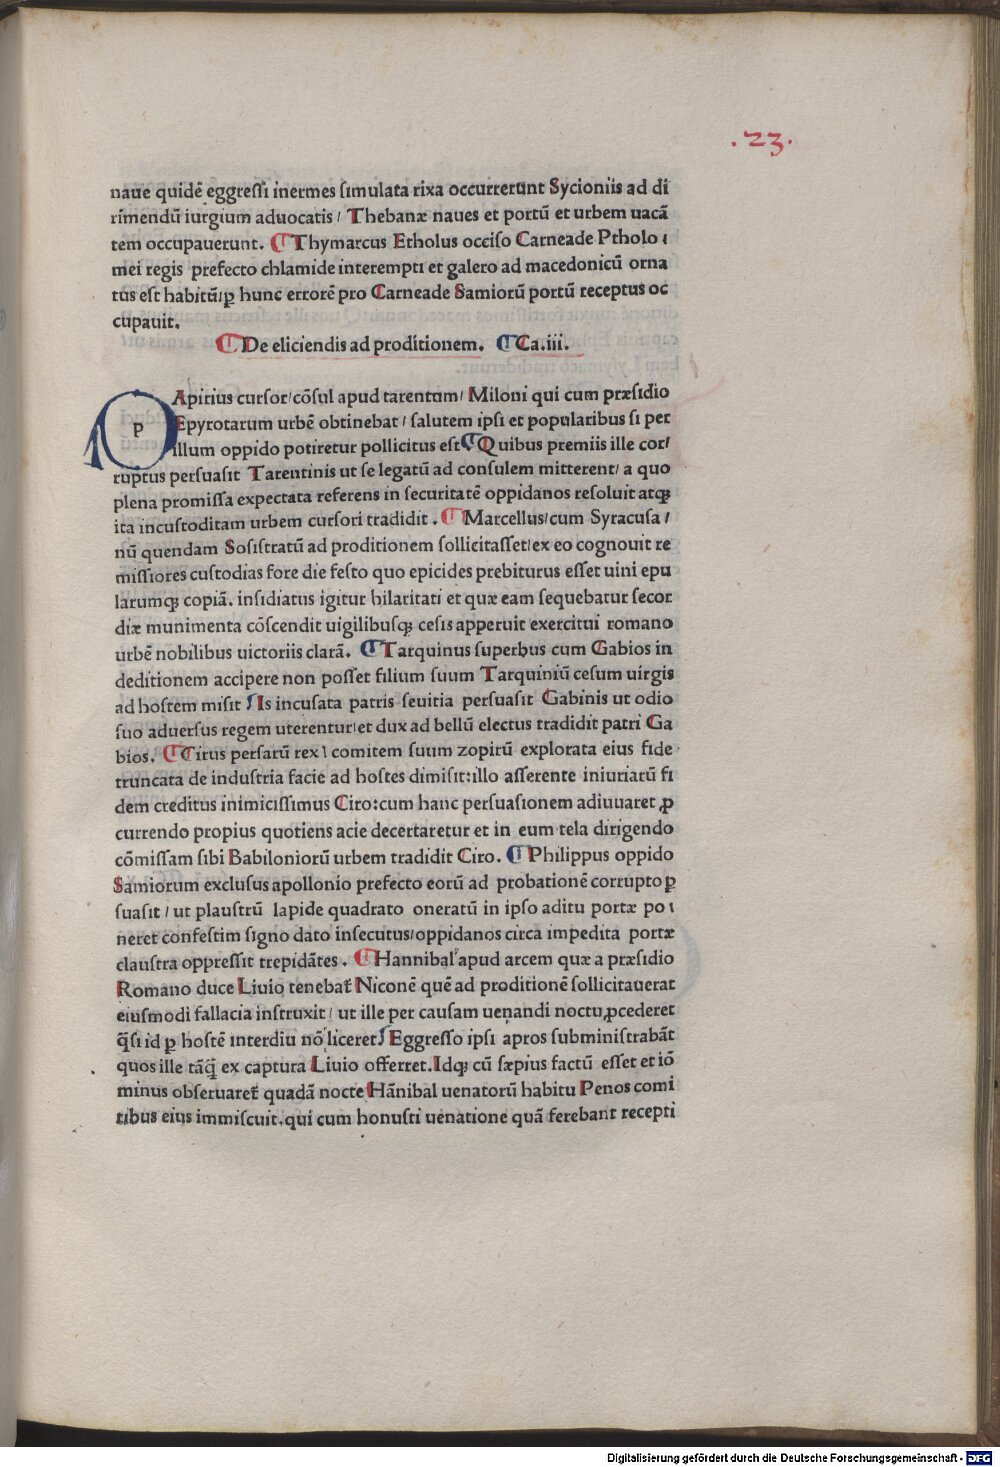 .23.
naue quidē eggressi inermes simulata rixa occurrerunt Sycioniis ad di
rimendū iurgium aduocatis/ Thebanæ naues et portū et urbem uacā
tem occupauerunt. ¶Thymarcus Etholus occiso Carneade Ptholo⸗
mei regis prefecto chlamide interempti et galero ad macedonicū orna
tus est habitū/ꝑ hunc errorē pro Carneade Samiorū portū receptus oc
cupauit.
¶De eliciendis ad proditionem. ¶Ca.iii.
pApirius cursor/cōsul apud tarentum/ Miloni qui cum præsidio
Epyrotarum urbē obtinebat/ salutem ipsi et popularibus si per
illum oppido potiretur pollicitus est¶Quibus premiis ille cor/
ruptus persuasit Tarentinis ut se legatū ad consulem mitterent/ a quo
plena promissa expectata referens in securitatē oppidanos resoluit atqꝫ
ita incustoditam urbem cursori tradidit. ¶Marcellus/cum Syracusa/
nū quendam Sosistratū ad proditionem sollicitasset/ex eo cognouit re
missiores custodias fore die festo quo epicides prebiturus esset uini epu
larumqꝫ copiā. insidiatus igitur hilaritati et quæ eam sequebatur secor
diæ munimenta cōscendit uigilibusqꝫ cesis apperuit exercitui romano
urbē nobilibus uictoriis clarā. ¶Tarquinus superbus cum Gabios in
deditionem accipere non posset filium suum Tarquiniū cesum uirgis
ad hostem misit Is incusata patris seuitia persuasit Gabinis ut odio
suo aduersus regem uterentur/et dux ad bellū electus tradidit patri Ga
bios. ¶Cirus persarū rex/ comitem suum zopirū explorata eius fide
truncata de industria facie ad hostes dimisit:illo asserente iniuriarū fi
dem creditus inimicissimus Ciro:cum hanc persuasionem adiuuaret ꝓ
currendo propius quotiens acie decertaretur et in eum tela dirigendo
cōmissam sibi Babiloniorū urbem tradidit Ciro. ¶Philippus oppido
Samiorum exclusus apollonio prefecto eorū ad probationē corrupto ꝑ
suasit/ ut plaustrū lapide quadrato oneratū in ipso aditu portæ po⸗
neret confestim signo dato insecutus/oppidanos circa impedita portæ
claustra oppressit trepidātes. ¶Hannibal apud arcem quæ a præsidio
Romano duce Liuio tenebat̄ Niconē quē ad proditionē sollicitauerat
eiusmodi fallacia instruxit/ ut ille per causam uenandi noctu ꝓcederet
q̄si id ꝑ hostē interdiu nō liceret Eggresso ipsi apros subministrabāt
quos ille tāq̄ ex captura Liuio offerret.Idqꝫ cū sæpius factū esset et iō
minus obseruaret̄ quadā nocte Hānibal uenatorū habitu Penos comi
tibus eius immiscuit.qui cum honusti uenatione quā ferebant recepti
Digitalisierung gefördert durch die Deutsche Forschungsgemeinschaft - DFG